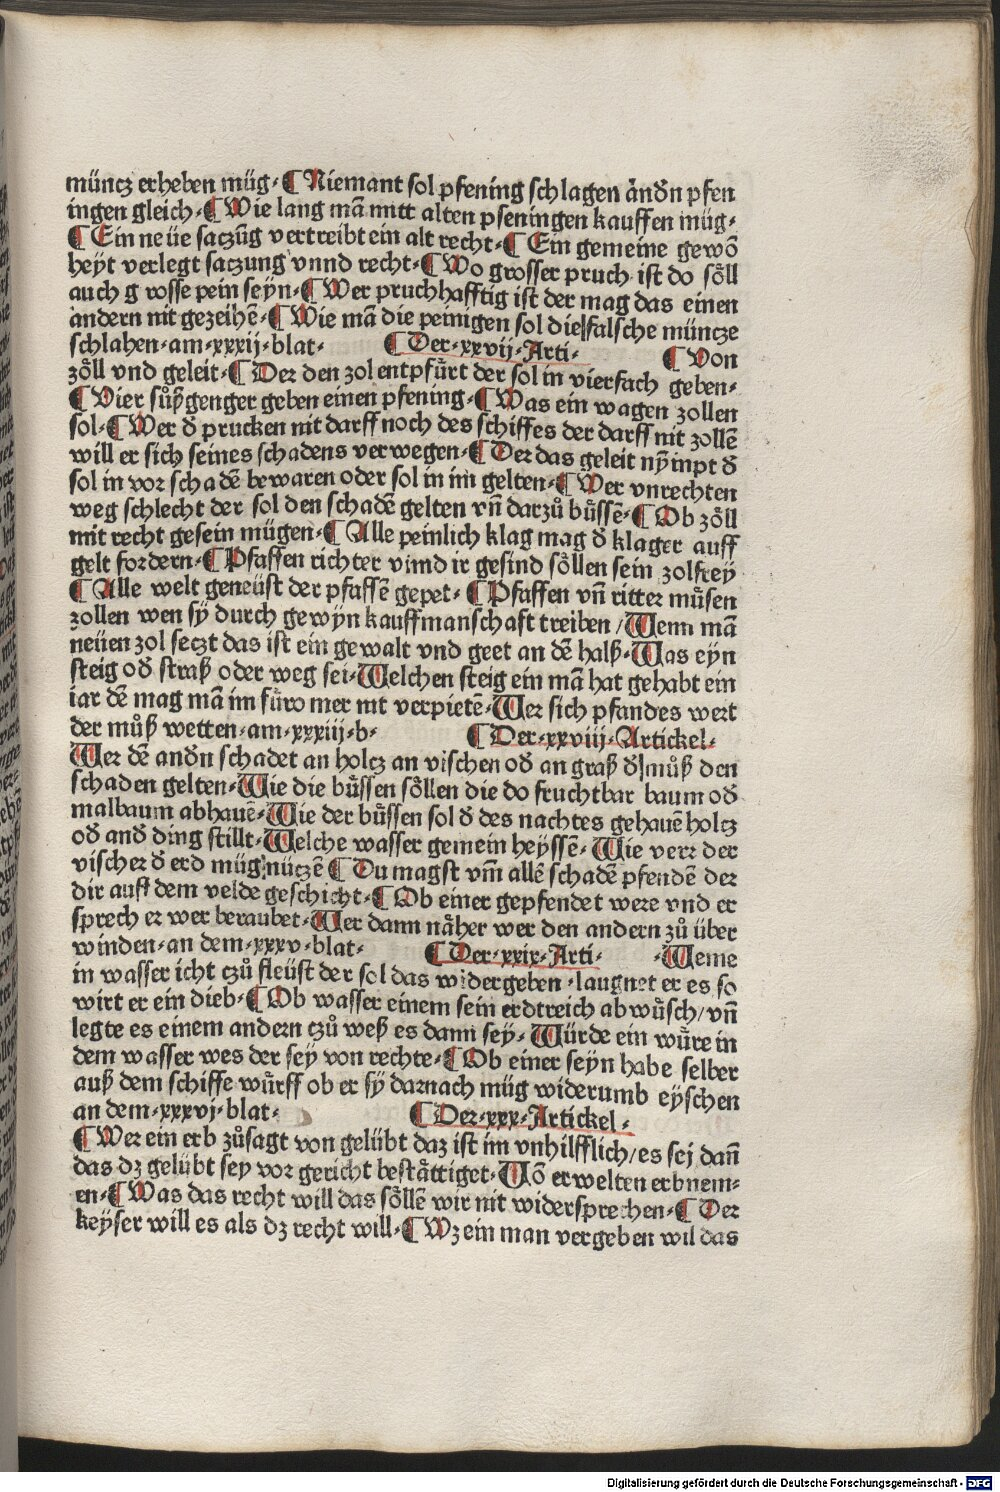 müncz erheben müg· ¶ Niemant sol pfening schlagen ändñ pfen
ingen gleich· ¶ Wie lang mā mitt alten pfeningen kauffen müg·
¶ Ein neüe saczūg vertreibt ein alt recht· ¶ Ein gemeine gewō
heyt verlegt saczung vnnd recht· ¶ Wo grosser pruch ist do söll
auch grosse pein seyn· ¶ Wer pruchhafftig ist der mag das einen
andern nit gezeihē· ¶ Wie mā die peinigen sol die falsche müncze
schlahen·am·xxxij·blat· ¶ Der·xxvij·Arti· ¶ Von
zöll vnd geleit· ¶ Der den zol entpfürt der sol in vierfach geben·
¶ Vier fůßgenger geben einen pfening· ¶ Was ein wagen zollen
sol· ¶ Wer đ prucken nit darff noch des schiffes der darff nit zollē
will er sich seines schadens verwegen· ¶ Der das geleit nÿmpt đ
sol in vor schadē bewaren oder sol in im gelten· ¶ Wer vnrechten
weg schlecht der sol den schadē gelten vn̄ darzů büssē· ¶ Ob zöll
mit recht gesein mügen· ¶ Alle peinlich klag mag đ klager auff
gelt fordern· ¶ Pfaffen richter vnnd ir gesind söllen sein zolfrey
¶ Alle welt geneüst der pfaffē gepet· ¶ Pfaffen vn̄ ritter müsen
zollen wen sÿ durch gewÿn kauffmanschaft treiben / Wenn mā
neüen zol seczt das ist ein gewalt vnd geet an dē halß· Was eyn
steig ođ straß oder weg sei· Welchen steig ein mā hat gehabt ein
iar dē mag mā im füro mer nit verpietē· Wer sich pfandes wert
der můß wetten·am·xxxiij·b· ¶ Der·xxviij·Artickel·
Wer dē andñ schadet an holcz an vischen ođ an graß đ můß den
schaden gelten· Wie die büssen söllen die do fruchtbar baum ođ
malbaum abhauē· Wie der büssen sol đ des nachtes gehauē holcz
ođ anđ ding stillt· Welche wasser gemein heyssē· Wie verr der
vischer đ erd müg nüczē ¶ Du magst vm̄ allē schadē pfendē der
dir auff dem velde geschicht· ¶ Ob einer gepfendet were vnd er
sprech er wer beraubet· Wer dann näher wer den andern zů über
winden·an dem·xxxv·blat· ¶ Der·xxix·Arti· ·Weme
in wasser icht czů fleüst der sol das widergeben·laugnet er es so
wirt er ein dieb· ¶ Ob wasser einem sein erdtreich abwüsch/ vn̄
legte es einem andern czů weß es dann sey· Würde ein würe in
dem wasser wes der sey von rechte· ¶ Ob einer seyn habe selber
auß dem schiffe würff ob er sÿ darnach müg widerumb eÿschen
an dem·xxxvj·blat· ¶ Der·xxx·Artickel·
¶ Wer ein erb zůsagt von gelübt daz ist im vnhilfflich/ es sej dañ
das dz gelübt sey vor gericht bestättiget· Vō erwelten erbnem⸗
en· ¶ Was das recht will das söllē wir nit widersprechen· ¶ Der
keÿser will es als dz recht will· ¶ Wz ein man vergeben wil das
Digitalisierung gefördert durch die Deutsche Forschungsgemeinschaft - DFG